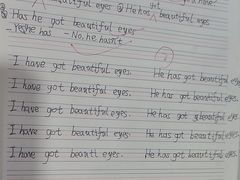 beautiful eyes ② He has got beautiful eyes
③ Has he got beautiful eyes
- Yes, he has - No, he hasn't.
I have got beautiful eyes. He has got beautiful eyes.
I have got beautiful eyes. He has got beautiful eyes.
I have got beautiful eyes. He has got beautiful eyes.
I have got beautiful eyes. He has got beautiful eyes.
I have got beauti eyes. He has got beautiful eyes.